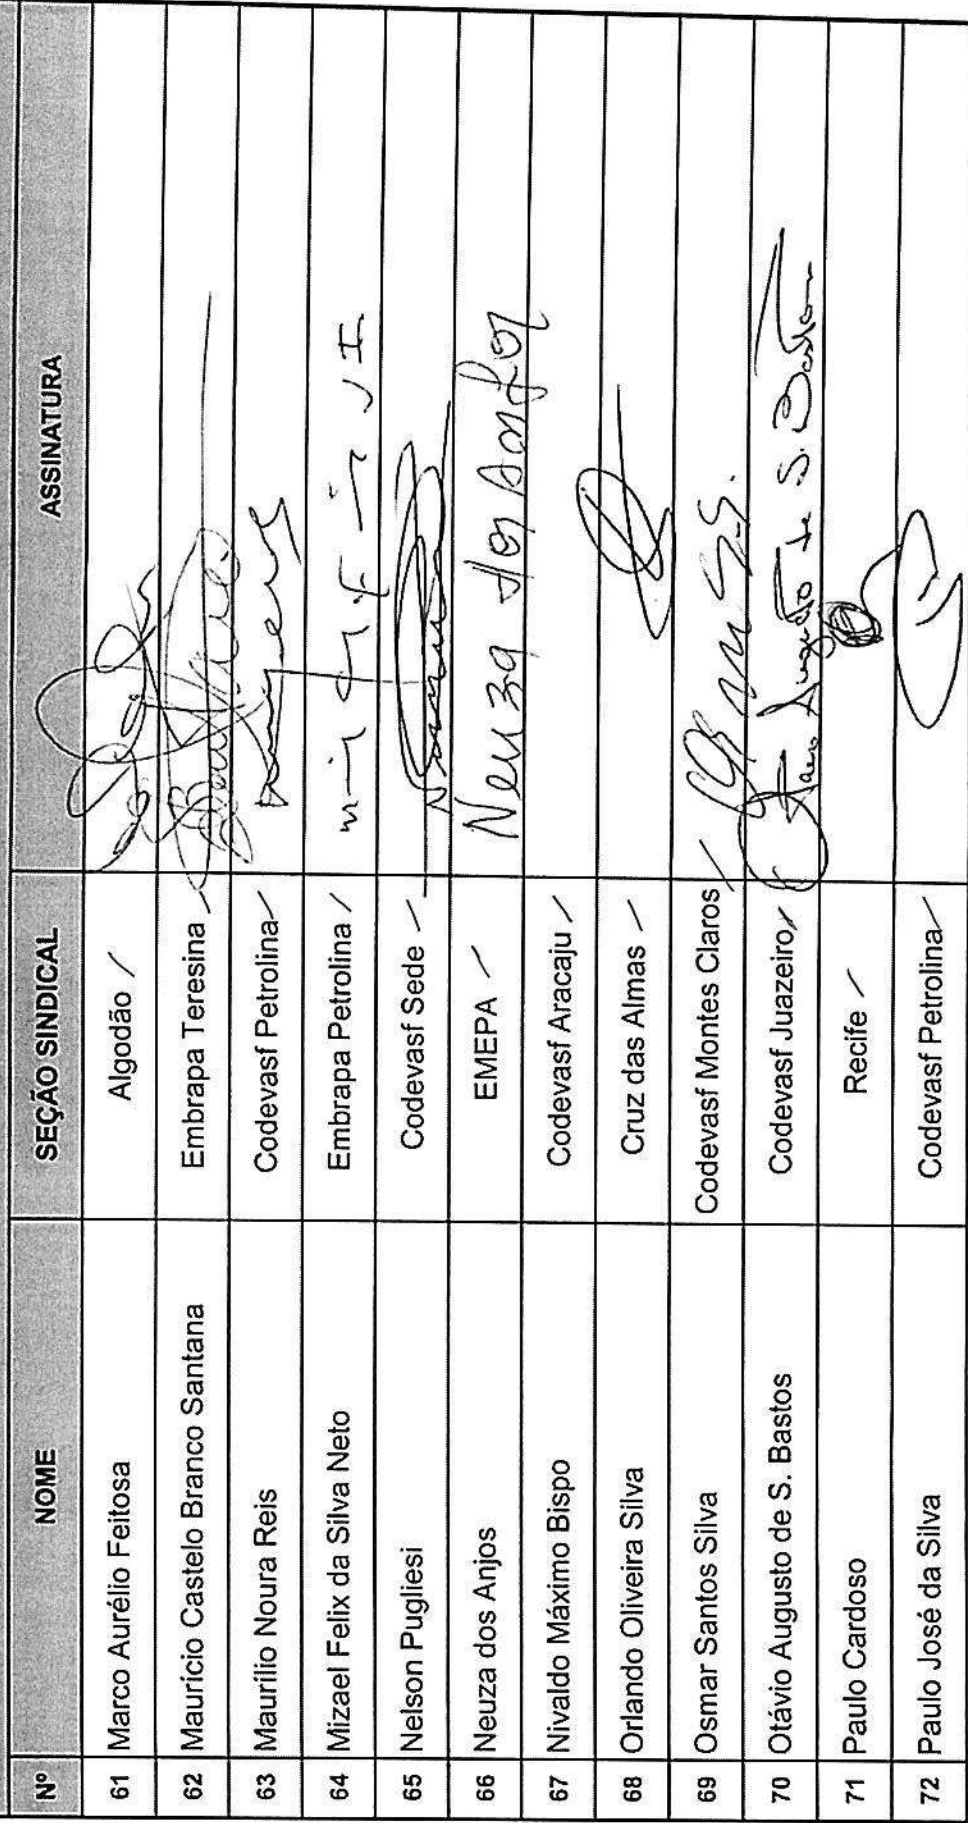 Nº NOME SEÇÃO SINDICAL ASSINATURA
61 Marco Aurélio Feitosa Algodão
62 Mauricio Castelo Branco Santana Embrapa Teresina
63 Maurilio Noura Reis Codevasf Petrolina
64 Mizael Felix da Silva Neto Embrapa Petrolina
65 Nelson Pugliesi Codevasf Sede
66 Neuza dos Anjos EMEPA Neuza dos Anjos
67 Nivaldo Máximo Bispo Codevasf Aracaju
68 Orlando Oliveira Silva Cruz das Almas
69 Osmar Santos Silva Codevasf Montes Claros
70 Otávio Augusto de S. Bastos Codevasf Juazeiro Augusto de S. Bastos
71 Paulo Cardoso Recife
72 Paulo José da Silva Codevasf Petrolina